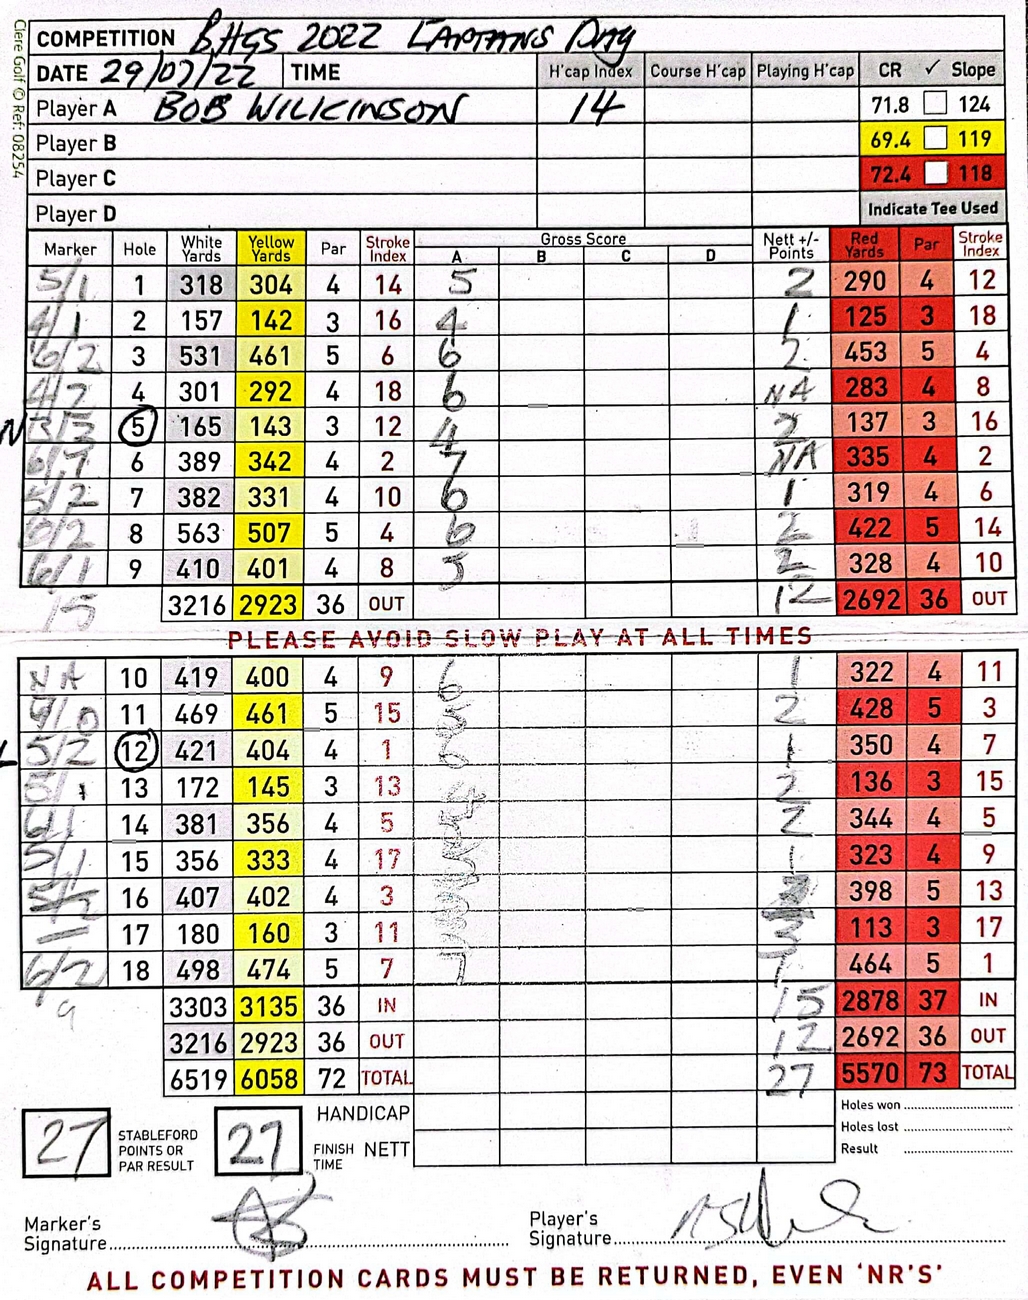 Clere Golf © Ref: 08254
COMPETITION BHGS 2022 CAPTAINS DAY
DATE 29/07/22 TIME H'cap Index Course H'cap Playing H'cap CR ✓ Slope
Player A BOB WILKINSON 14 71.8 124
Player B 69.4 119
Player C 72.4 118
Player D Indicate Tee Used
Marker Hole White Yards Yellow Yards Par Stroke Index Gross Score A B C D Nett +/- Points Red Yards Par Stroke Index
5/1 1 318 304 4 14 5 2 290 4 12
4/1 2 157 142 3 16 4 1 125 3 18
6/2 3 531 461 5 6 6 2 453 5 4
4/2 4 301 292 4 18 6 NA 283 4 8
N 3/3 5 165 143 3 12 4 2 137 3 16
6 389 342 4 2 7 NA 335 4 2
5/2 7 382 331 4 10 6 1 319 4 6
6/2 8 563 507 5 4 6 2 422 5 14
6/1 9 410 401 4 8 5 2 328 4 10
15 3216 2923 36 OUT 12 2692 36 OUT
PLEASE AVOID SLOW PLAY AT ALL TIMES
NA 10 419 400 4 9 6 1 322 4 11
11 469 461 5 15 5 2 428 5 3
L 5/2 12 421 404 4 1 6 1 350 4 7
5/1 13 172 145 3 13 4 2 136 3 15
6/1 14 381 356 4 5 5 2 344 4 5
5/1 15 356 333 4 17 1 323 4 9
5/2 16 407 402 4 3 398 5 13
— 17 180 160 3 11 3 113 3 17
6/2 18 498 474 5 7 7 1 464 5 1
9 3303 3135 36 IN 15 2878 37 IN
3216 2923 36 OUT 12 2692 36 OUT
6519 6058 72 TOTAL 27 5570 73 TOTAL
27 STABLEFORD POINTS OR PAR RESULT 27 FINISH TIME
HANDICAP
NETT
Holes won
Holes lost
Result
Marker's Signature
Player's Signature
ALL COMPETITION CARDS MUST BE RETURNED, EVEN 'NR'S'